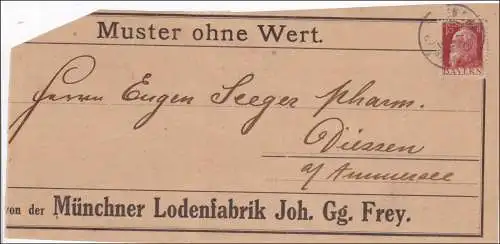 Muster ohne Wert.
BAYERN
Herrn Eugen Seeger pharm.
Diessen
a/Ammersee
von der Münchner Lodenfabrik Joh. Gg. Frey.